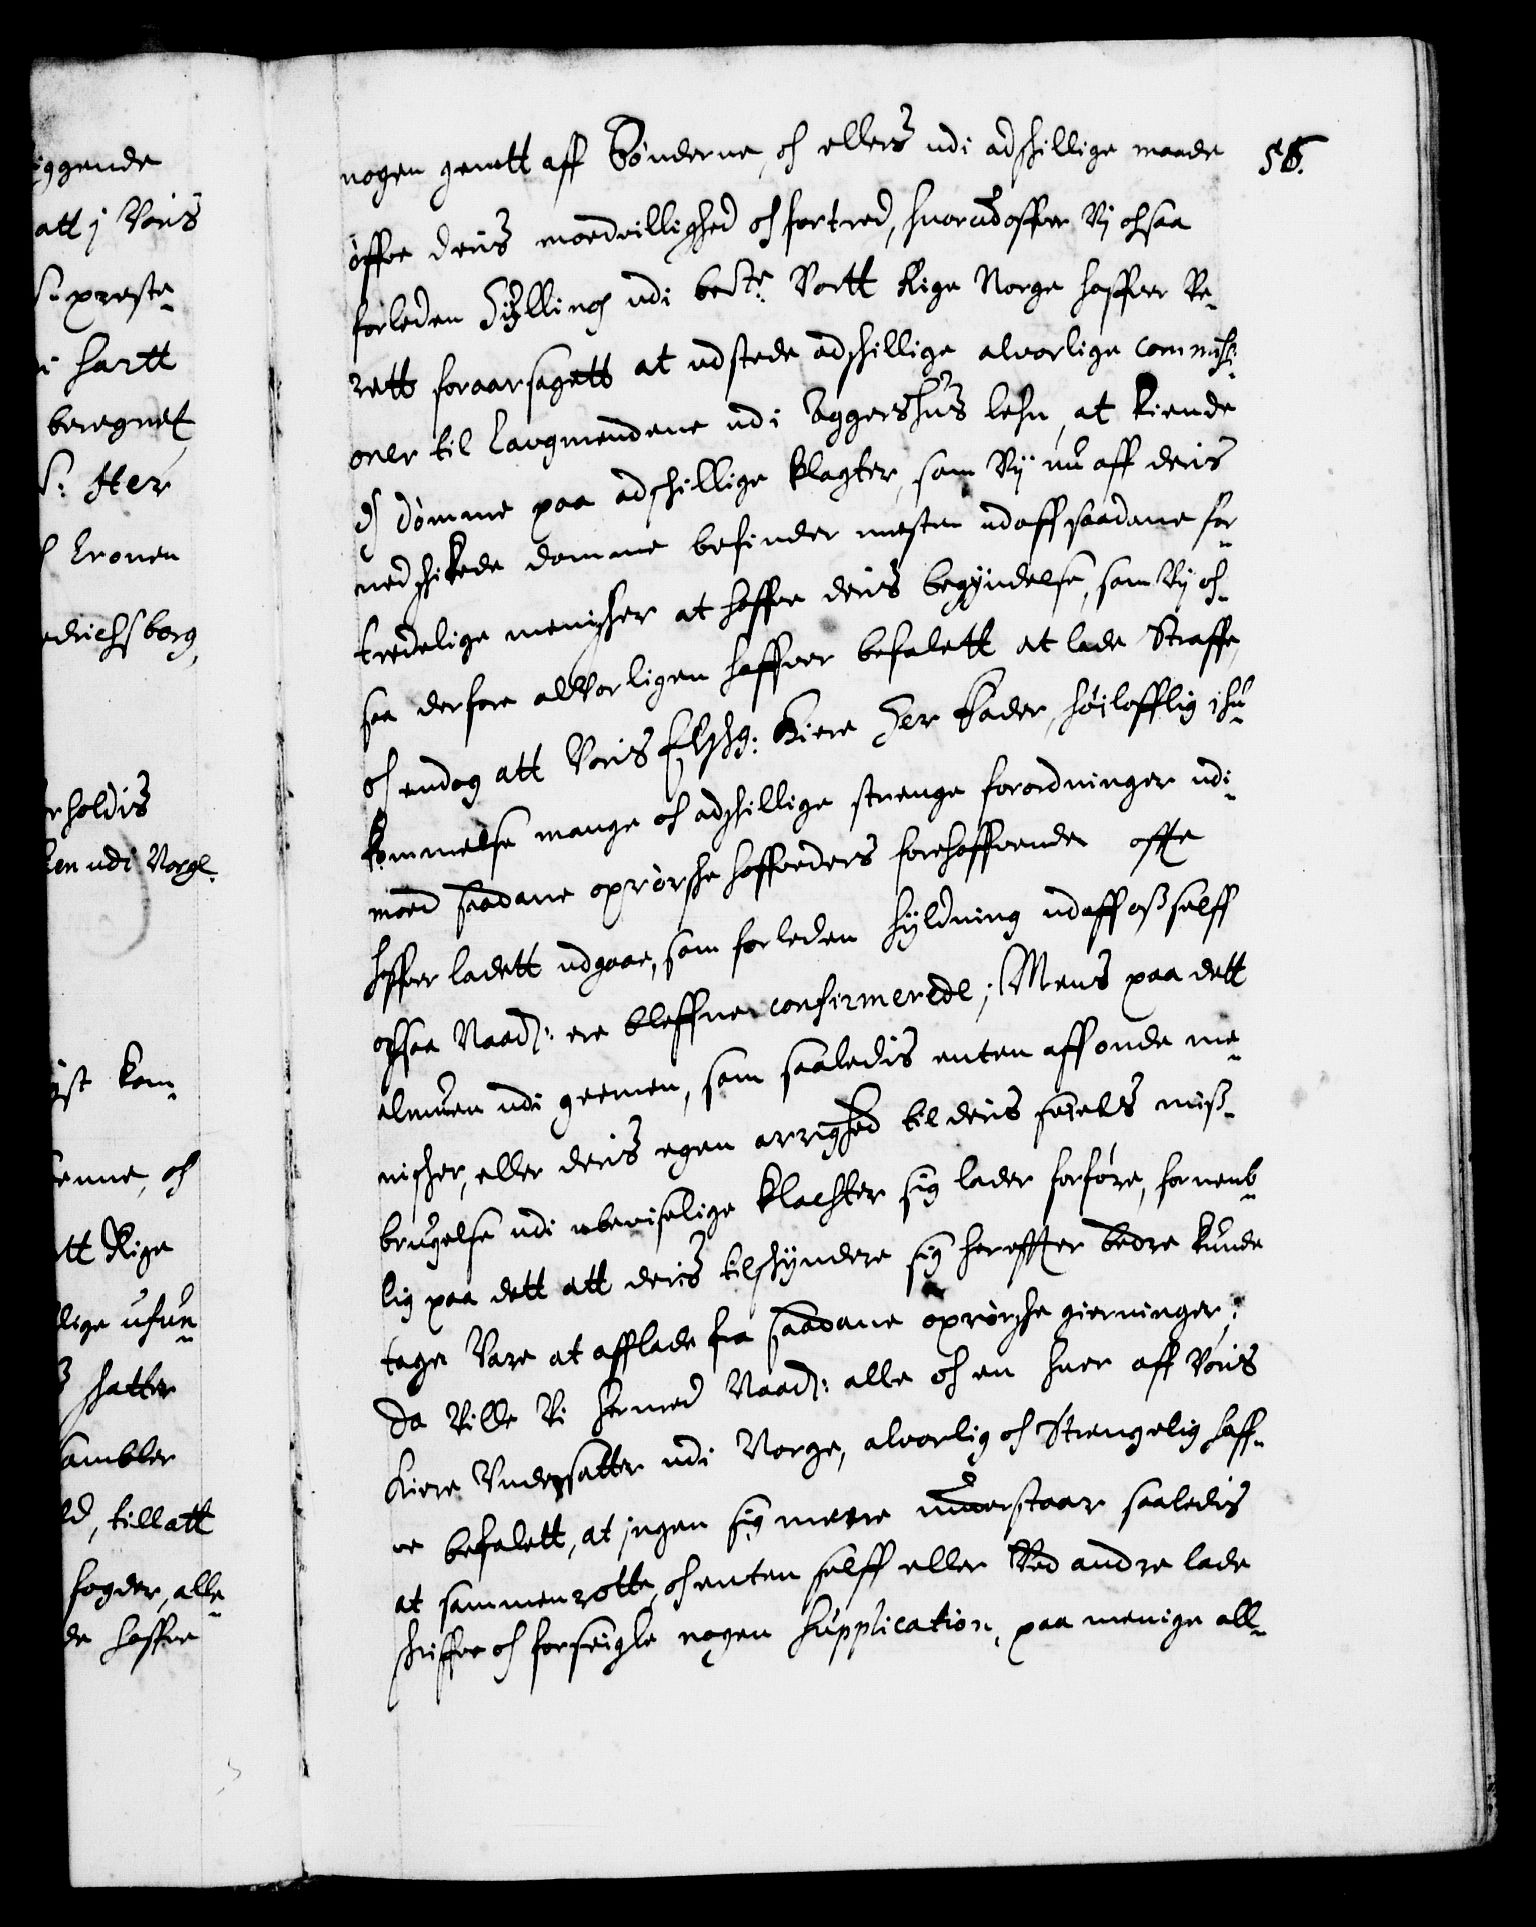 iggende
att j Voris
preste¬
i hartt
beregnet
Her
Cronen
edrichsborg,
rholdis
ken udi Norge.
yst kom¬
enne, och
tt Rige
dlige ufun¬
skatter
sambler
ld, till att
fogder, alle¬
de haffue
58.
nogen genett aff Bønderne, och ellers udi adskillige maade
øffue deris moedvillighed och fortred, huorudoffuer Vj ochsaa
forleden Hylling udi besᵗᵉ: Vortt Rige Norge haffuer Ve¬
rett foraarsagett at udstede adskillige alvorlige commissi¬
oner til Laugmendene udi Aggershus lehn, at kiende
och dømme paa adskillige klagter, som Vij nu aff deris
nedskikede domme befinder mesten udaff saadane for¬
tredelige menisker at haffue deris begyndelse, som Vij och¬
saa derfore alvorligen haffuer befalett at lade Straffe,
och endog att Voris Elskg: Kiere Her Fader, høilofflig ihu¬
kommelse mange och adskillige strenge forordninger udi¬
moed saadane oprørske hoffueders forehaffuende offte
haffuer ladett udgaae, som forleden hyldning udaff oß selff
ochsaa Naad: ere bleffuen confirmerede; Mens paa dett
almuen udi geemen, som saaledis enten aff onde me¬
nisker, eller deris egen arrighed til deris seiels miß¬
brugelse udi ubeviselige klachter sig lader forføre, fornemb¬
lig paa dett att deris tilskyndere sig hereffter bedre kunde
tage Vare at afflade fra saadane oprørske gierninger,
da Ville Vi hermed Naad: alle och en huer aff Voris
kiere Undersatter udi Norge, alvorlig och Strengelig haff¬
ue befalett, at ingen sig meere understaar saaledis
at sammenrotte, och enten selff eller Ved andre lade
skriffue och forseigle nogen supplication, paa menige all¬